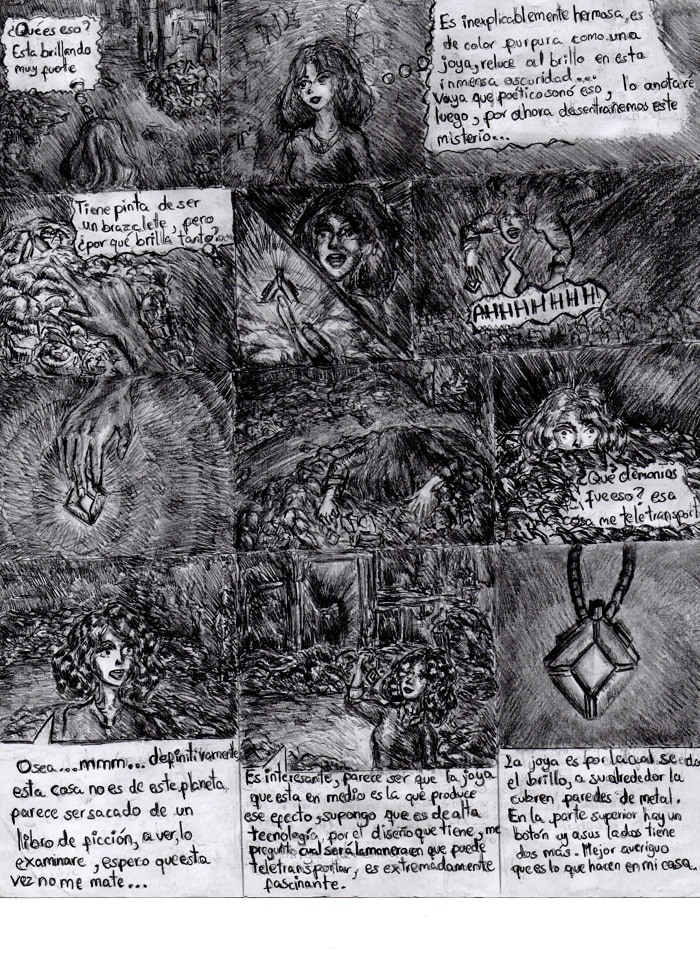 ¿Qué es eso?
Esta brillando
muy fuerte
Es inexplicablemente hermosa, es
de color purpura como una
joya, reluce al brillo en esta
inmensa oscuridad...
Vaya que poético sonó eso, lo anotaré
luego, por ahora desentrañemos este
misterio...
Tiene pinta de ser
un brazalete, pero
¿por qué brilla tanto?
AHHHHHHH!
¿Qué demonios
fue eso? esa
cosa me teletransport
Osea...mmm... definitivamente
esta cosa no es de este planeta,
parece ser sacado de un
libro de ficción, a ver, lo
examinare, espero que esta
vez no me mate...
Es interesante, parece ser que la joya
que esta en medio es la que produce
ese efecto, supongo que es de alta
tecnología, por el diseño que tiene, me
pregunto cual será la manera en que puede
teletransportar, es extremadamente
fascinante.
La joya es por la cual se da
el brillo, a su alrededor la
cubren paredes de metal.
En la parte superior hay un
botón y a sus lados tiene
dos más. Mejor averiguo
que es lo que hacen en mi casa.